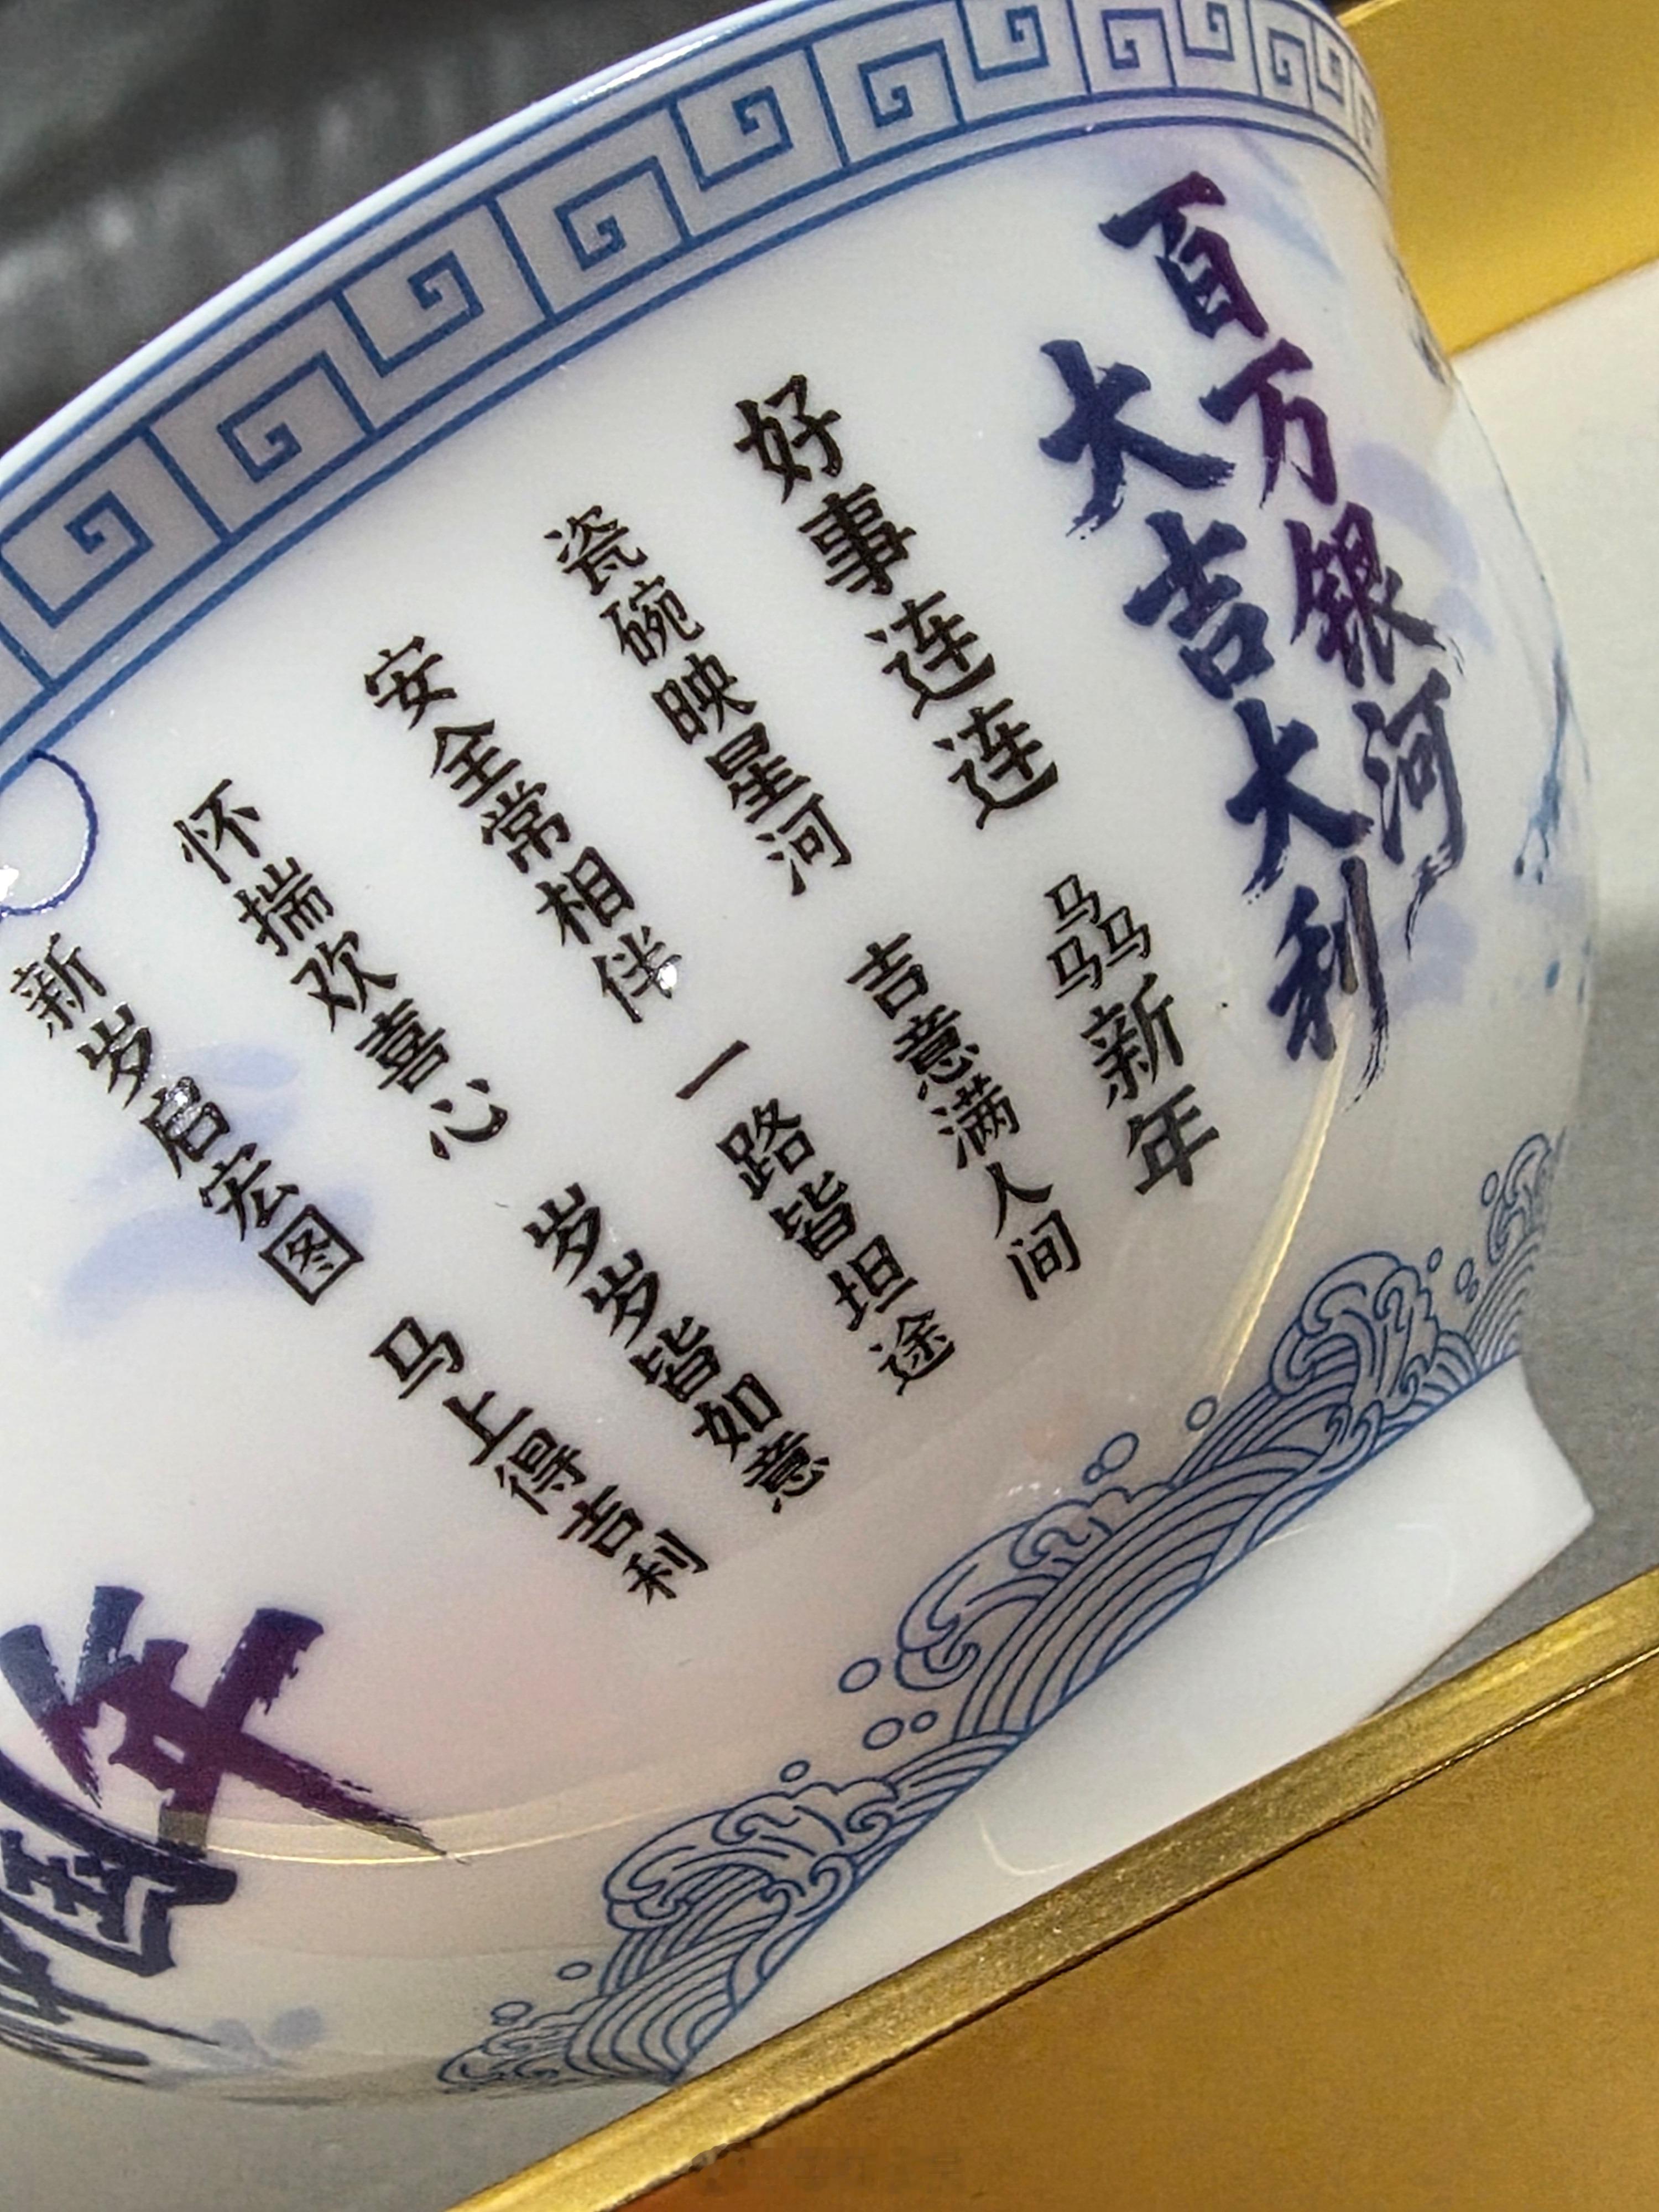 百万银河
大吉大利
好事连连 骉新年
瓷碗映星河 吉意满人间
安全常相伴 一路皆坦途
怀揣欢喜心 岁岁皆如意
新岁启宏图 马上得吉利